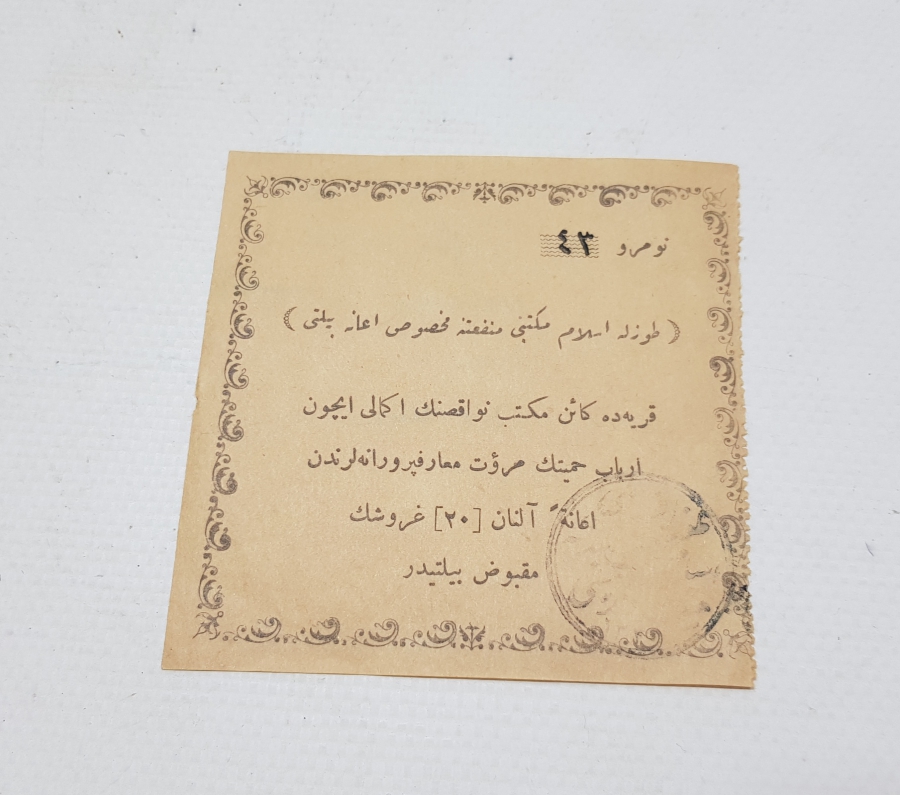 نومرو ٤٣
( طوزله اسلام مكتبى منفعتنه مخصوص اعانه بيلتى )
قريه‌ده كائن مكتب نواقصنك اكمالى ايچون
ارباب حميتك مروّت معارفپرورانه‌لرندن
اعانةً آلنان [٢٠] غروشك
مقبوض بيلتيدر